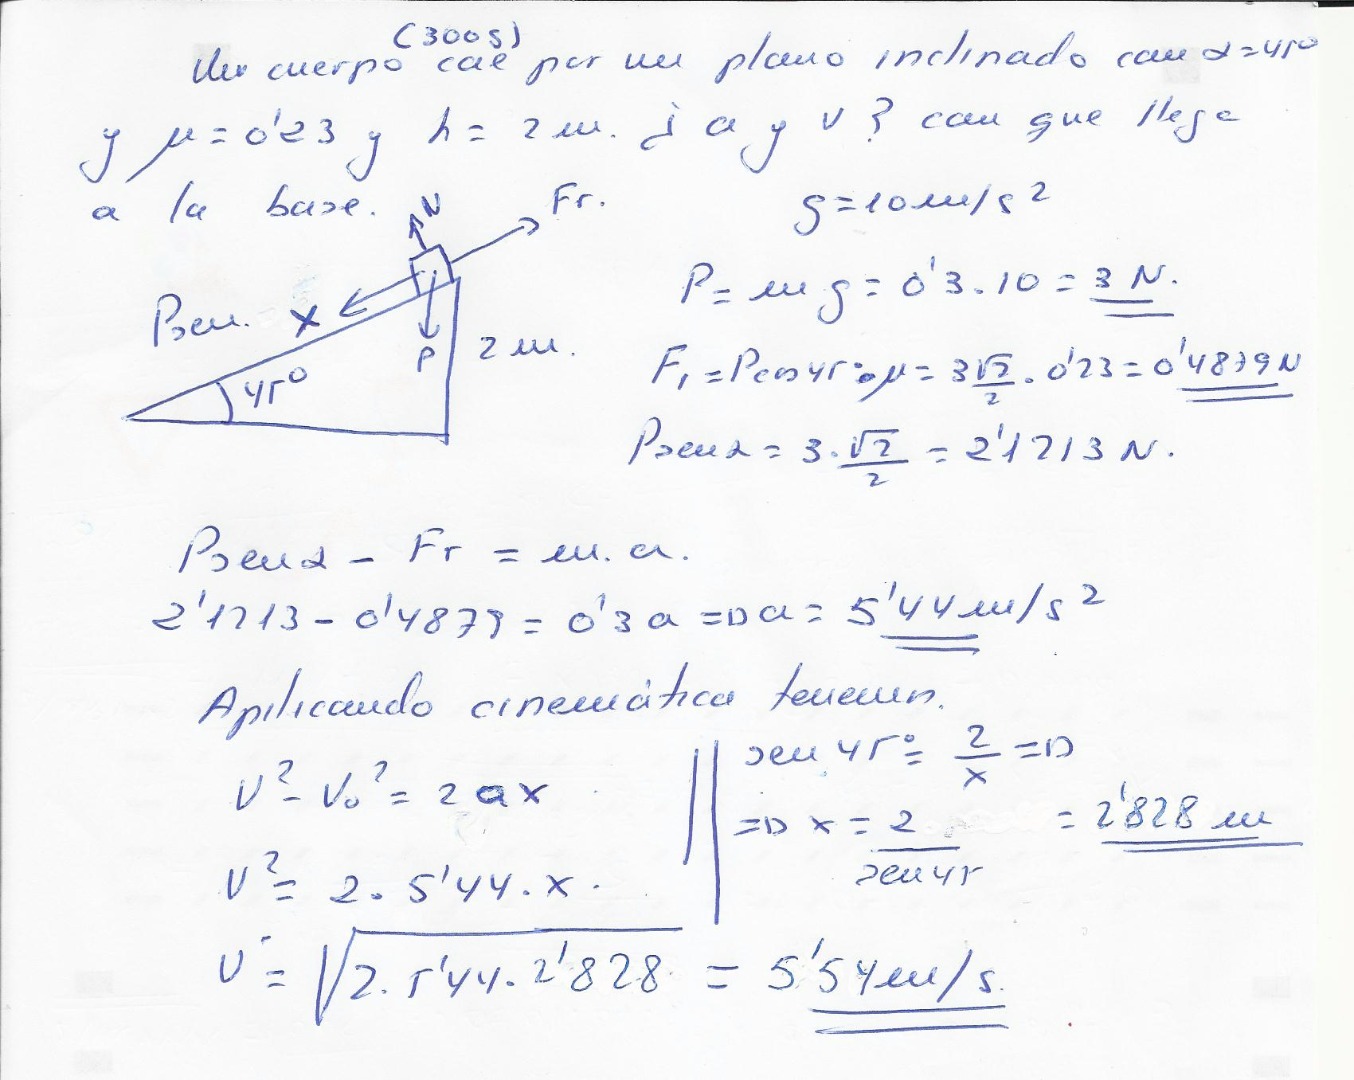 (300g)
Un cuerpo cae por un plano inclinado con α=45º
y μ=0'23 y h= 2m. ¿ a y v? con que llega
a la base.
g=10m/s²
N
Fr.
Psen. x
P
2m.
45º
P= m g= 0'3.10=3 N.
F₁=Pcos45º.μ=3√2/2.0'23=0'4879N
Psenα=3.√2/2=2'1213N.
Psenα - Fr = m.a.
2'1213-0'4879=0'3a =>a=5'44m/s²
Aplicando cinemática tenemos.
V²-V₀²=2ax
V²=2.5'44.x.
V=√2.5'44.2'828 = 5'54m/s.
sen45º=2/x=>
=>x=2/sen45 =2'828m